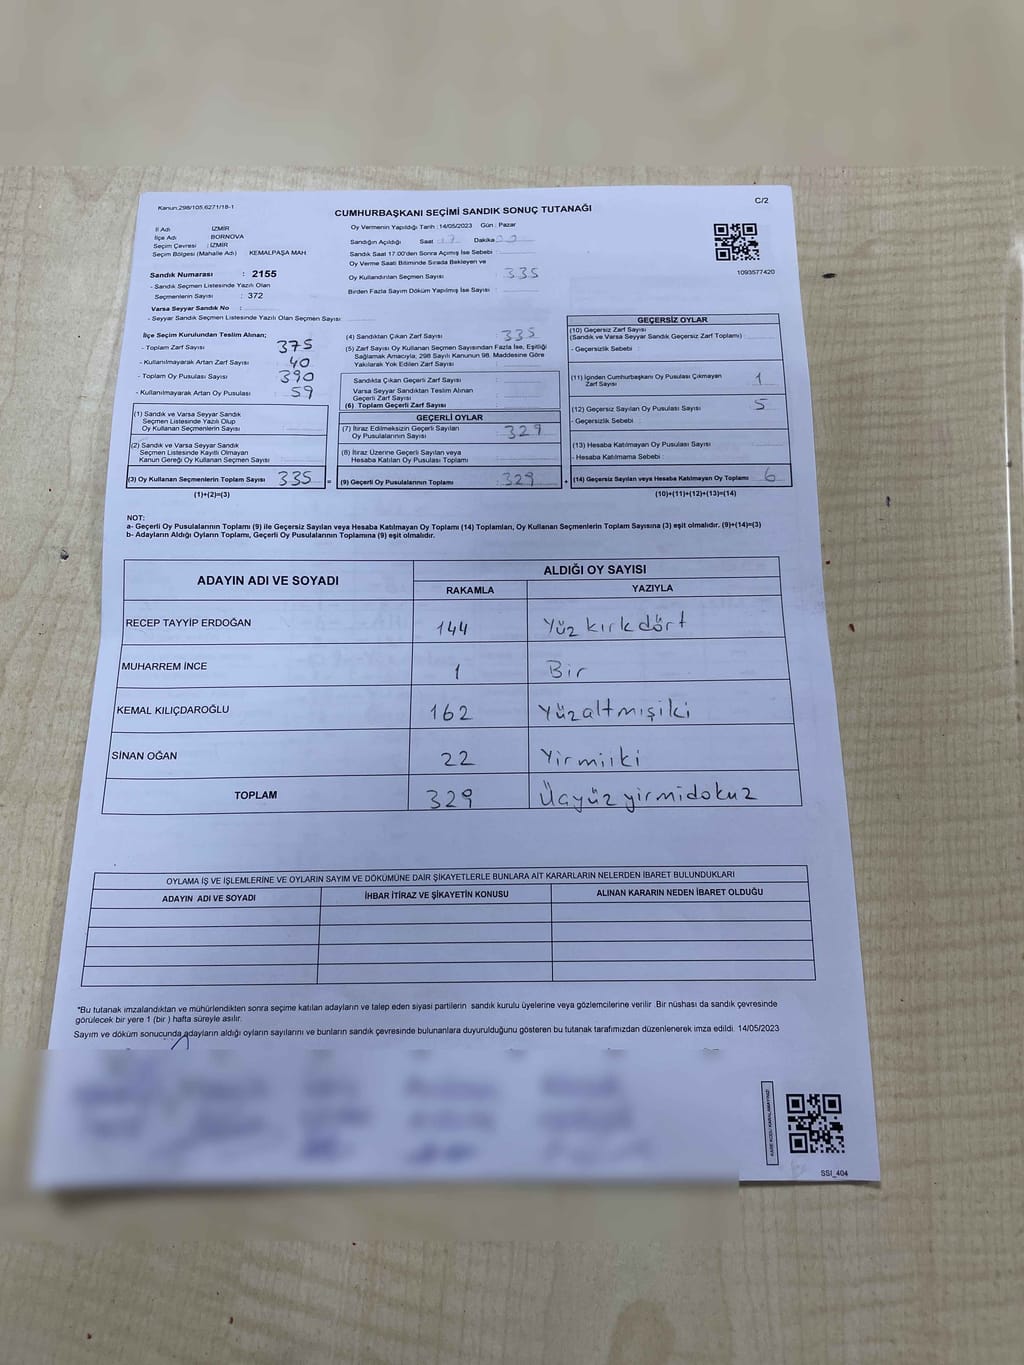 Kanun:298/105,6271/18-1
C/2
CUMHURBAŞKANI SEÇİMİ SANDIK SONUÇ TUTANAĞI
İl Adı İZMİR
İlçe Adı BORNOVA
Seçim Çevresi : İZMİR
Seçim Bölgesi (Mahalle Adı) KEMALPAŞA MAH
Sandık Numarası : 2155
- Sandık Seçmen Listesinde Yazılı Olan
Seçmenlerin Sayısı : 372
Varsa Seyyar Sandık No :
- Seyyar Sandık Seçmen Listesinde Yazılı Olan Seçmen Sayısı:
Oy Vermenin Yapıldığı Tarih :14/05/2023 Gün : Pazar
Sandığın Açıldığı Saat 17 Dakika
Sandık Saat 17:00'den Sonra Açılmış İse Sebebi :
Oy Verme Saati Bitiminde Sırada Bekleyen ve
Oy Kullandırılan Seçmen Sayısı : 335
Birden Fazla Sayım Döküm Yapılmış İse Sayısı :
1093577420
İlçe Seçim Kurulundan Teslim Alınan;
- Toplam Zarf Sayısı : 375
- Kullanılmayarak Artan Zarf Sayısı : 40
- Toplam Oy Pusulası Sayısı : 390
- Kullanılmayarak Artan Oy Pusulası : 59
(1) Sandık ve Varsa Seyyar Sandık
Seçmen Listesinde Yazılı Olup
Oy Kullanan Seçmenlerin Sayısı :
(2) Sandık ve Varsa Seyyar Sandık
Seçmen Listesinde Kayıtlı Olmayan
Kanun Gereği Oy Kullanan Seçmen Sayısı :
(3) Oy Kullanan Seçmenlerin Toplam Sayısı : 335 =
(1)+(2)=(3)
(4) Sandıktan Çıkan Zarf Sayısı : 335
(5) Zarf Sayısı Oy Kullanan Seçmen Sayısından Fazla İse, Eşitliği
Sağlamak Amacıyla, 298 Sayılı Kanunun 98. Maddesine Göre
Yakılarak Yok Edilen Zarf Sayısı :
Sandıkta Çıkan Geçerli Zarf Sayısı :
Varsa Seyyar Sandıktan Teslim Alınan
Geçerli Zarf Sayısı :
(6) Toplam Geçerli Zarf Sayısı :
GEÇERLİ OYLAR
(7) İtiraz Edilmeksizin Geçerli Sayılan
Oy Pusulasının Sayısı : 329
(8) İtiraz Üzerine Geçerli Sayılan veya
Hesaba Katılan Oy Pusulası Toplamı :
(9) Geçerli Oy Pusulalarının Toplamı : 329 +
GEÇERSİZ OYLAR
(10) Geçersiz Zarf Sayısı
(Sandık ve Varsa Seyyar Sandık Geçersiz Zarf Toplamı) :
- Geçersizlik Sebebi :
(11) İçinden Cumhurbaşkanı Oy Pusulası Çıkmayan
Zarf Sayısı : 1
(12) Geçersiz Sayılan Oy Pusulası Sayısı : 5
- Geçersizlik Sebebi :
(13) Hesaba Katılmayan Oy Pusulası Sayısı :
- Hesaba Katılmama Sebebi :
(14) Geçersiz Sayılan veya Hesaba Katılmayan Oy Toplamı : 6
(10)+(11)+(12)+(13)=(14)
NOT:
a- Geçerli Oy Pusulalarının Toplamı (9) ile Geçersiz Sayılan veya Hesaba Katılmayan Oy Toplamı (14) Toplamları, Oy Kullanan Seçmenlerin Toplam Sayısına (3) eşit olmalıdır. (9)+(14)=(3)
b- Adayların Aldığı Oyların Toplamı, Geçerli Oy Pusulalarının Toplamına (9) eşit olmalıdır.
ADAYIN ADI VE SOYADI ALDIĞI OY SAYISI
RAKAMLA YAZIYLA
RECEP TAYYİP ERDOĞAN 144 Yüz kırk dört
MUHARREM İNCE 1 Bir
KEMAL KILIÇDAROĞLU 162 Yüzaltmışiki
SİNAN OĞAN 22 Yirmiiki
TOPLAM 329 Üçyüz yirmidokuz
OYLAMA İŞ VE İŞLEMLERİNE VE OYLARIN SAYIM VE DÖKÜMÜNE DAİR ŞİKAYETLERLE BUNLARA AİT KARARLARIN NELERDEN İBARET BULUNDUKLARI
ADAYIN ADI VE SOYADI İHBAR İTİRAZ VE ŞİKAYETİN KONUSU ALINAN KARARIN NEDEN İBARET OLDUĞU
*Bu tutanak imzalandıktan ve mühürlendikten sonra seçime katılan adayların ve talep eden siyasi partilerin sandık kurulu üyelerine veya gözlemcilerine verilir .Bir nüshası da sandık çevresinde
görülecek bir yere 1 (bir ) hafta süreyle asılır.
Sayım ve döküm sonucunda adayların aldığı oyların sayılarını ve bunların sandık çevresinde bulunanlara duyurulduğunu gösteren bu tutanak tarafımızdan düzenlenerek imza edildi. 14/05/2023
SSI_404